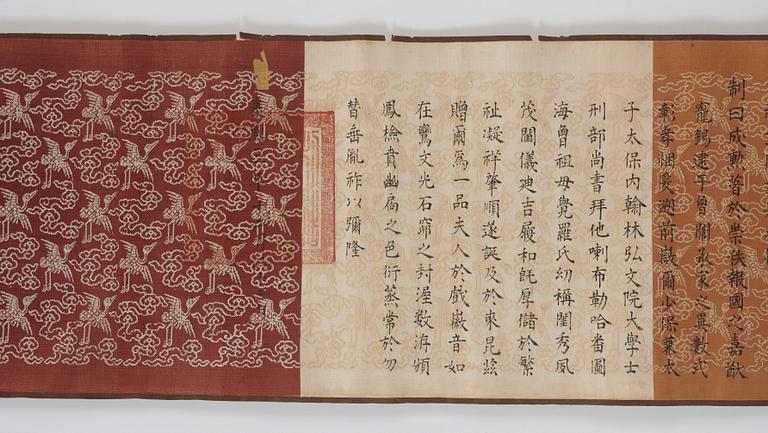 制曰成勳著於崇秩報國之嘉猷
寵錫逮于曾闈承家之異數式
彰孝悃爰遡前徽爾少保兼太
子太保內翰林弘文院大學士
刑部尚書拜他喇布勒哈番圖
海曾祖母覺羅氏幼稱閨秀夙
茂閫儀迪吉履和既厚儲於繁
祉凝祥肇順遂誕及於來昆茲
贈爾爲一品夫人於戲徽音如
在鸞文光石窌之封渥數洊頒
鳳檢賁幽扃之色衍蒸常於勿
替垂胤祚以彌隆